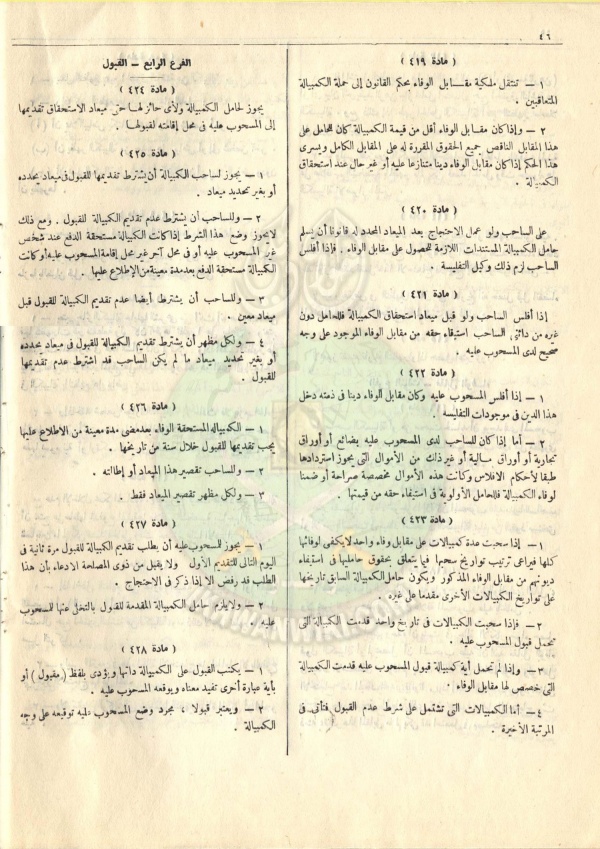 ٤٦
( مادة ٤١٩ )
١ – تنتقل ملكية مقابل الوفاء بحكم القانون إلى حملة الكمبيالة
المتعاقبين .
٢ – وإذا كان مقابل الوفاء أقل من قيمة الكمبيالة كان للحامل على
هذا المقابل الناقص جميع الحقوق المقررة له على المقابل الكامل ويسرى
هذا الحكم إذا كان مقابل الوفاء دينا متنازعا عليه أو غير حال عند استحقاق
الكمبيالة .
( مادة ٤٢٠ )
على الساحب ولو عمل الاحتجاج بعد الميعاد المحدد له قانونا أن يسلم
حامل الكمبيالة المستندات اللازمة للحصول على مقابل الوفاء . فإذا أفلس
الساحب لزم ذلك وكيل التفليسة .
( مادة ٤٢١ )
إذا أفلس الساحب ولو قبل ميعاد استحقاق الكمبيالة فللحامل دون
غيره من دائنى الساحب استيفاء حقه من مقابل الوفاء الموجود على وجه
صحيح لدى المسحوب عليه .
( مادة ٤٢٢ )
١ – إذا أفلس المسحوب عليه وكان مقابل الوفاء دينا فى ذمته دخل
هذا الدين فى موجودات التفليسه .
٢ – أما إذا كان للساحب لدى المسحوب عليه بضائع أو أوراق
تجارية أو أوراق مالية أو غير ذلك من الأموال التى يجوز استردادها
طبقا لأحكام الافلاس وكانت هذه الأموال مخصصة صراحة أو ضمنا
لوفاء الكمبيالة فللحامل الأولوية فى استيفاء حقه من قيمتها .
( مادة ٤٢٣ )
١ – إذا سحبت عدة كمبيالات على مقابل وفاء واحد لا يكفى لوفائها
كلها فيراعى ترتيب تواريخ سحبها فيما يتعلق بحقوق حامليها فى استيفاء
ديونهم من مقابل الوفاء المذكور ويكون حامل الكمبيالة السابق تاريخها
على تواريخ الكمبيالات الأخرى مقدما على غيره .
٢ – فإذا سحبت الكمبيالات فى تاريخ واحد قدمت الكمبيالة التى
تحمل قبول المسحوب عليه .
٣ – وإذا لم تحمل أية كمبيالة قبول المسحوب عليه قدمت الكمبيالة
التى خصص لها مقابل الوفاء .
٤ – أما الكمبيالات التى تشتمل على شرط عدم القبول فتأتى فى
المرتبة الأخيرة .
الفرع الرابع – القبول
( مادة ٤٢٤ )
يجوز لحامل الكمبيالة ولأى حائز لها حتى ميعاد الاستحقاق تقديمها
إلى المسحوب عليه فى محل إقامته لقبولها .
( مادة ٤٢٥ )
١ – يجوز لساحب الكمبيالة أن يشترط تقديمها للقبول فى ميعاد يحدده
أو بغير تحديد ميعاد .
٢ – وللساحب أن يشترط عدم تقديم الكمبيالة للقبول . ومع ذلك
لايجوز وضع هذا الشرط إذا كانت الكمبيالة مستحقة الدفع عند شخص
غير المسحوب عليه أو فى محل آخر غير محل إقامة المسحوب عليه أو كانت
الكمبيالة مستحقة الدفع بعد مدة معينة من الإطلاع عليها .
٣ – وللساحب أن يشترط أيضا عدم تقديم الكمبيالة للقبول قبل
ميعاد معين .
٤ – ولكل مظهر أن يشترط تقديم الكمبيالة للقبول فى ميعاد يحدده
أو بغير تحديد ميعاد ما لم يكن الساحب قد اشترط عدم تقديمها
للقبول .
( مادة ٤٢٦ )
١ – الكمبيالة المستحقة الوفاء بعد مضى مدة معينة من الاطلاع عليها
يجب تقديمها للقبول خلال سنة من تاريخها .
٢ – وللساحب تقصير هذا الميعاد أو إطالته .
٣ – ولكل مظهر تقصير الميعاد فقط .
( مادة ٤٢٧ )
١ – يجوز للمسحوب عليه أن يطلب تقديم الكمبيالة للقبول مرة ثانية فى
اليوم التالى للتقديم الأول ولا يقبل من ذوى المصلحة الادعاء بأن هذا
الطلب قد رفض الا إذا ذكر فى الاحتجاج .
٢ – ولا يلزم حامل الكمبيالة المقدمة للقبول بالتخلى عنها للمسحوب
عليه .
( مادة ٤٢٨ )
١ – يكتب القبول على الكمبيالة ذاتها ويؤدى بلفظ ( مقبول ) أو
بأية عبارة أخرى تفيد معناه ويوقعه المسحوب عليه .
٢ – ويعتبر قبولا ، مجرد وضع المسحوب عليه توقيعه على وجه
الكمبيالة .